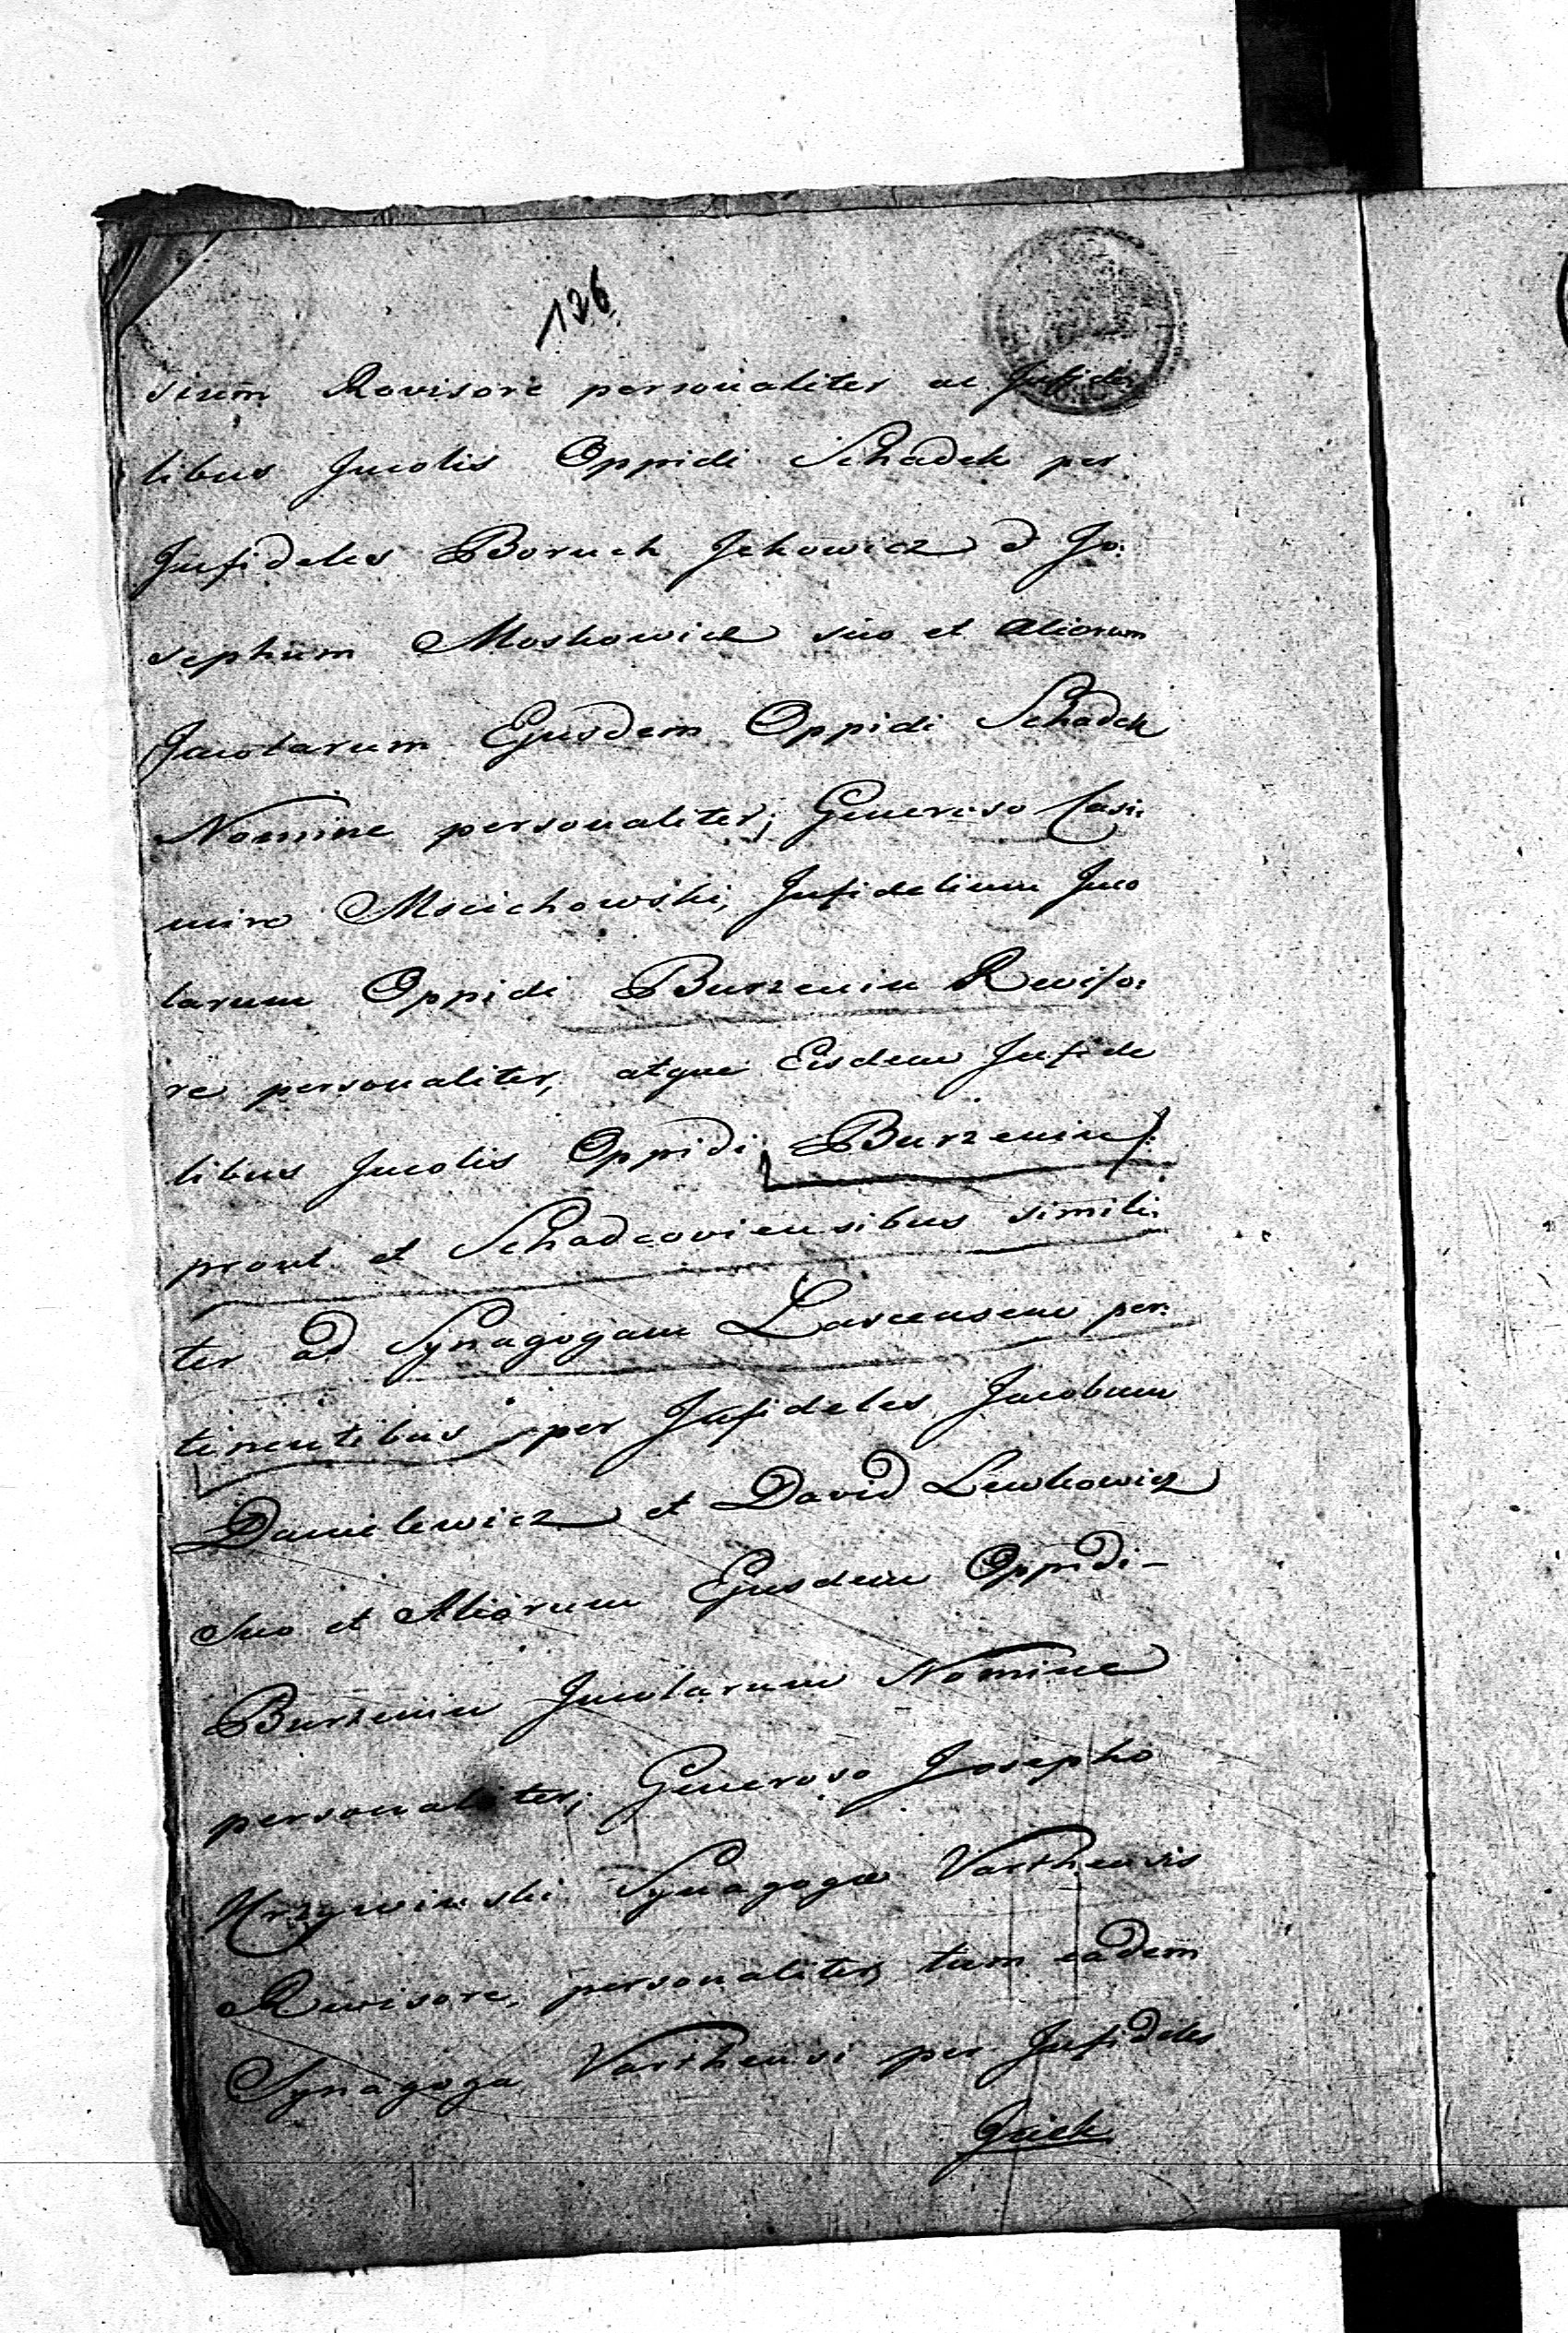 126
sium Revisore personaliter ac Infide:
libus Incolis Oppidi Schadek per
Infideles Boruch Jckowicz & Jo:
sephum Moskowicz suo et aliorum
Incolarum Ejusdem Oppidi Schadek
Nomine personaliter; Generoso Casi:
miro Mscichowski, Infidelium Inco
larum Oppidi Burzenin Reviso:
re personaliter, atque Eisdem Infide
libus Incolis Oppidi Burzenin
prout et Schadcoviensibus simili:
ter ad Synagogam Lascensem per:
tinentibus per Infideles Jacobum
Danielewicz et David Lewkowicz
Suo et Aliorum Ejusdem Oppidi -
Burzenin Incolarum Nomine
personaliter; Generoso Josepho
Krzywinski Synagogæ Varthensis
Revisore, personaliter, tum eadem
Synagoga Varthensi per Infideles